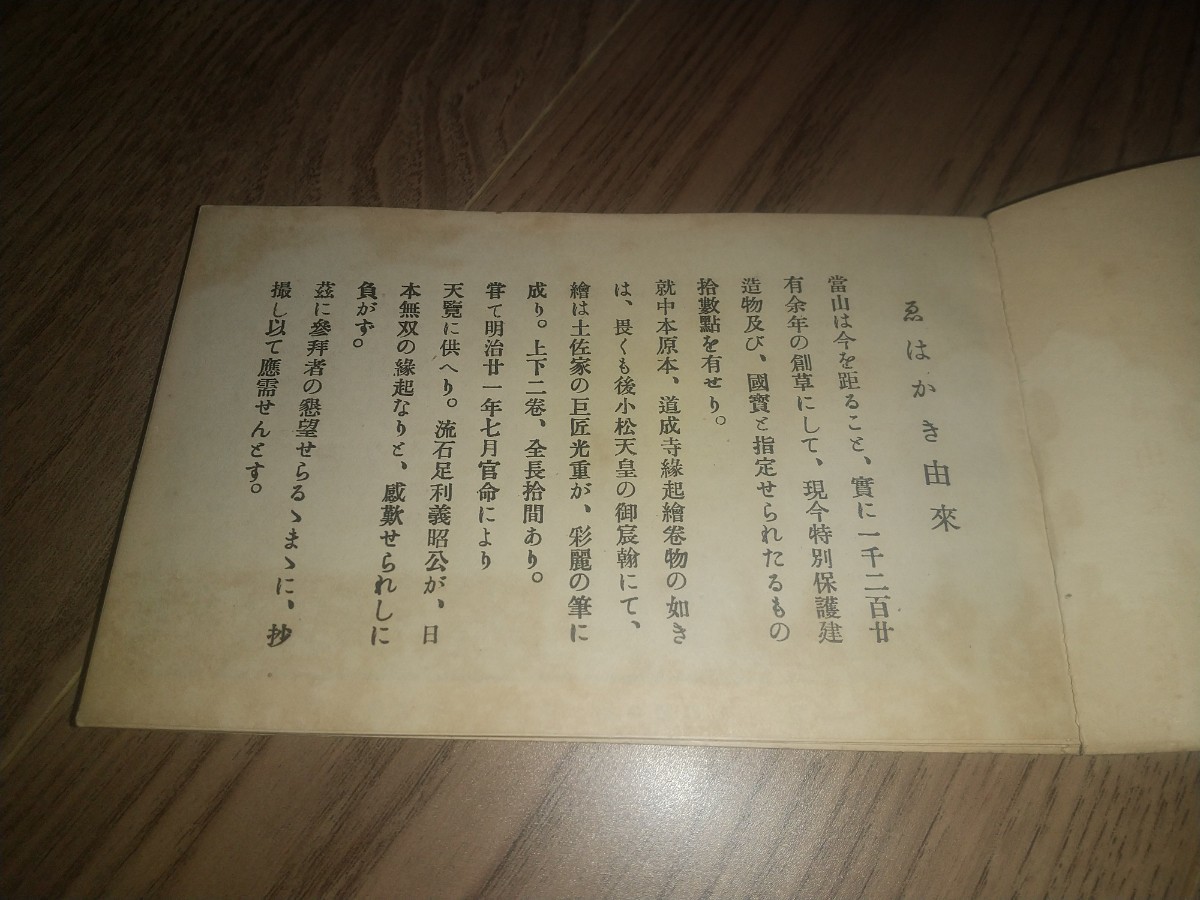 ゑはかき由來
當山は今を距ること、實に一千二百廿
有余年の創草にして、現今特別保護建
造物及び、國寳と指定せられたるもの
拾數點を有せり。
就中本原本、道成寺緣起繪卷物の如き
は、畏くも後小松天皇の御宸翰にて、
繪は土佐家の巨匠光重が、彩麗の筆に
成り。上下二卷、全長拾間あり。
甞て明治廿一年七月官命により
天覽に供へり。流石足利義昭公が、日
本無双の緣起なりと、感歎せられしに
負がず。
茲に參拜者の懇望せらるゝまゝに、抄
撮し以て應需せんとす。